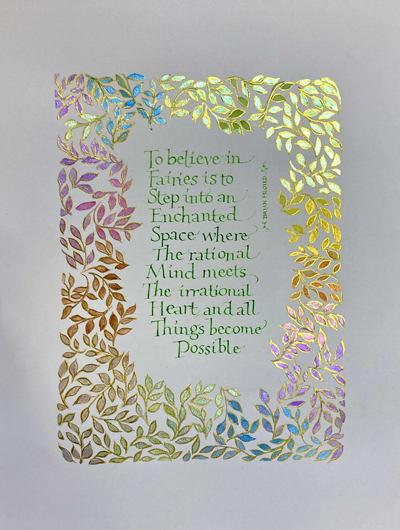 To believe in
Fairies is to
Step into an
Enchanted
Space where
The rational
Mind meets
The irrational
Heart and all
Things become
Possible
BRIAN FROUD